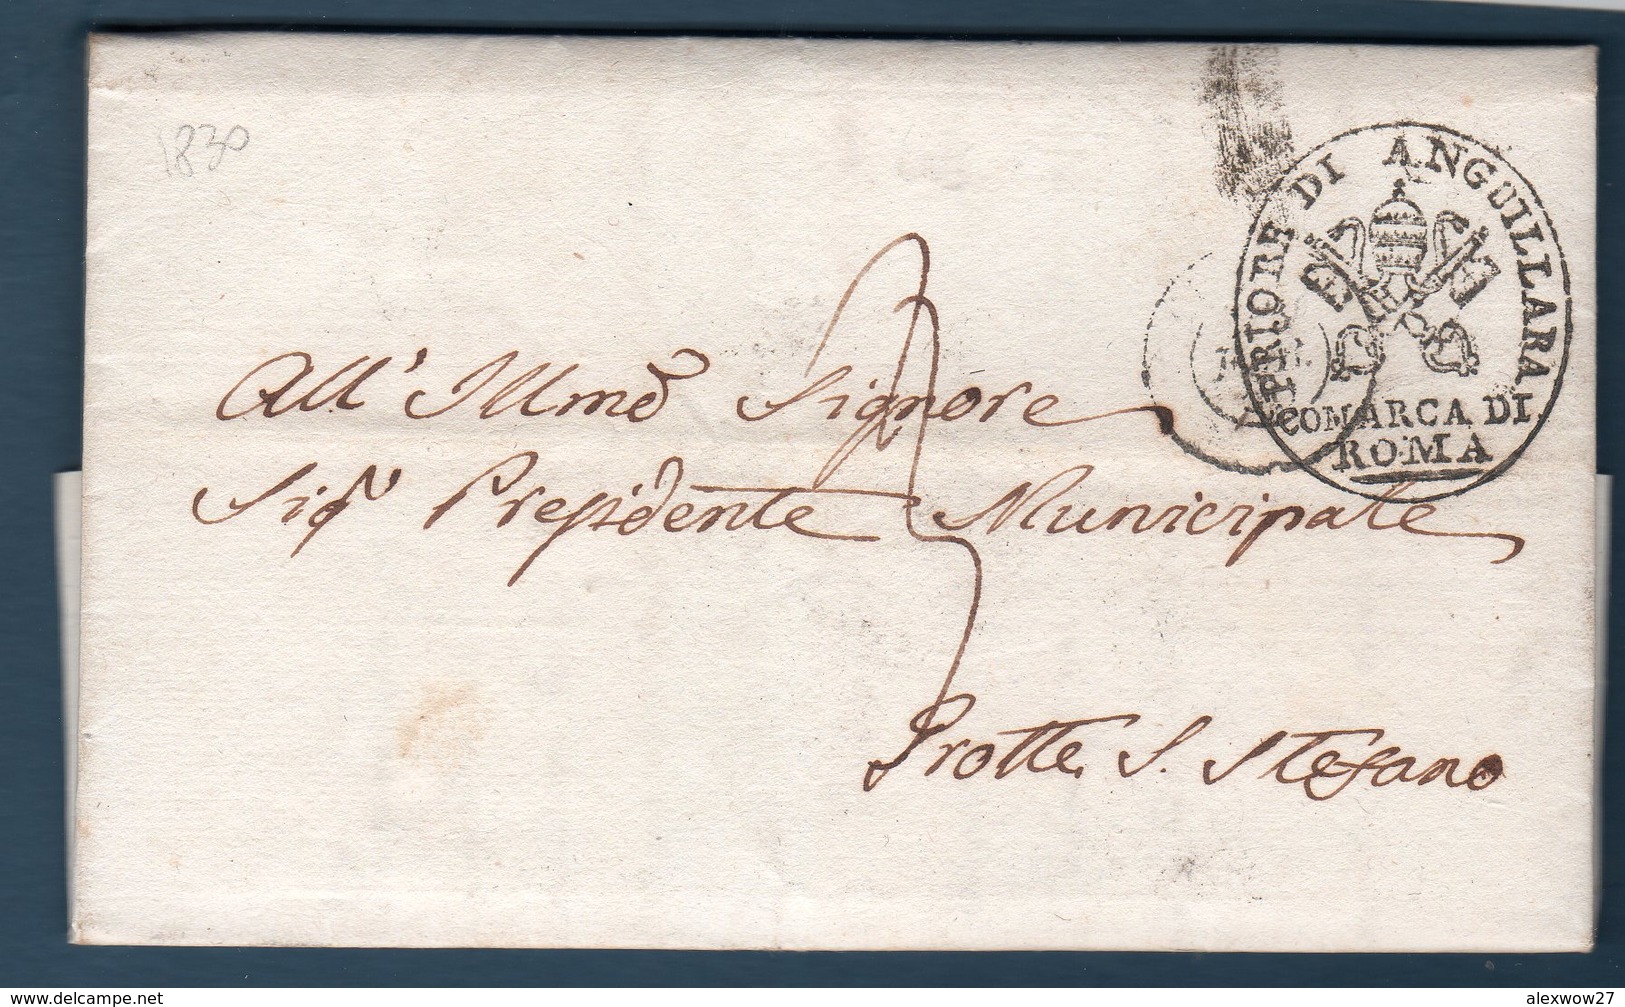 1830
PRIORE DI ANGUILLARA
COMARCA DI
ROMA
All' Illmo Signore
Sigr Presidente Municipale
Grotte S. Stefano
www.delcampe.net
alexwow27